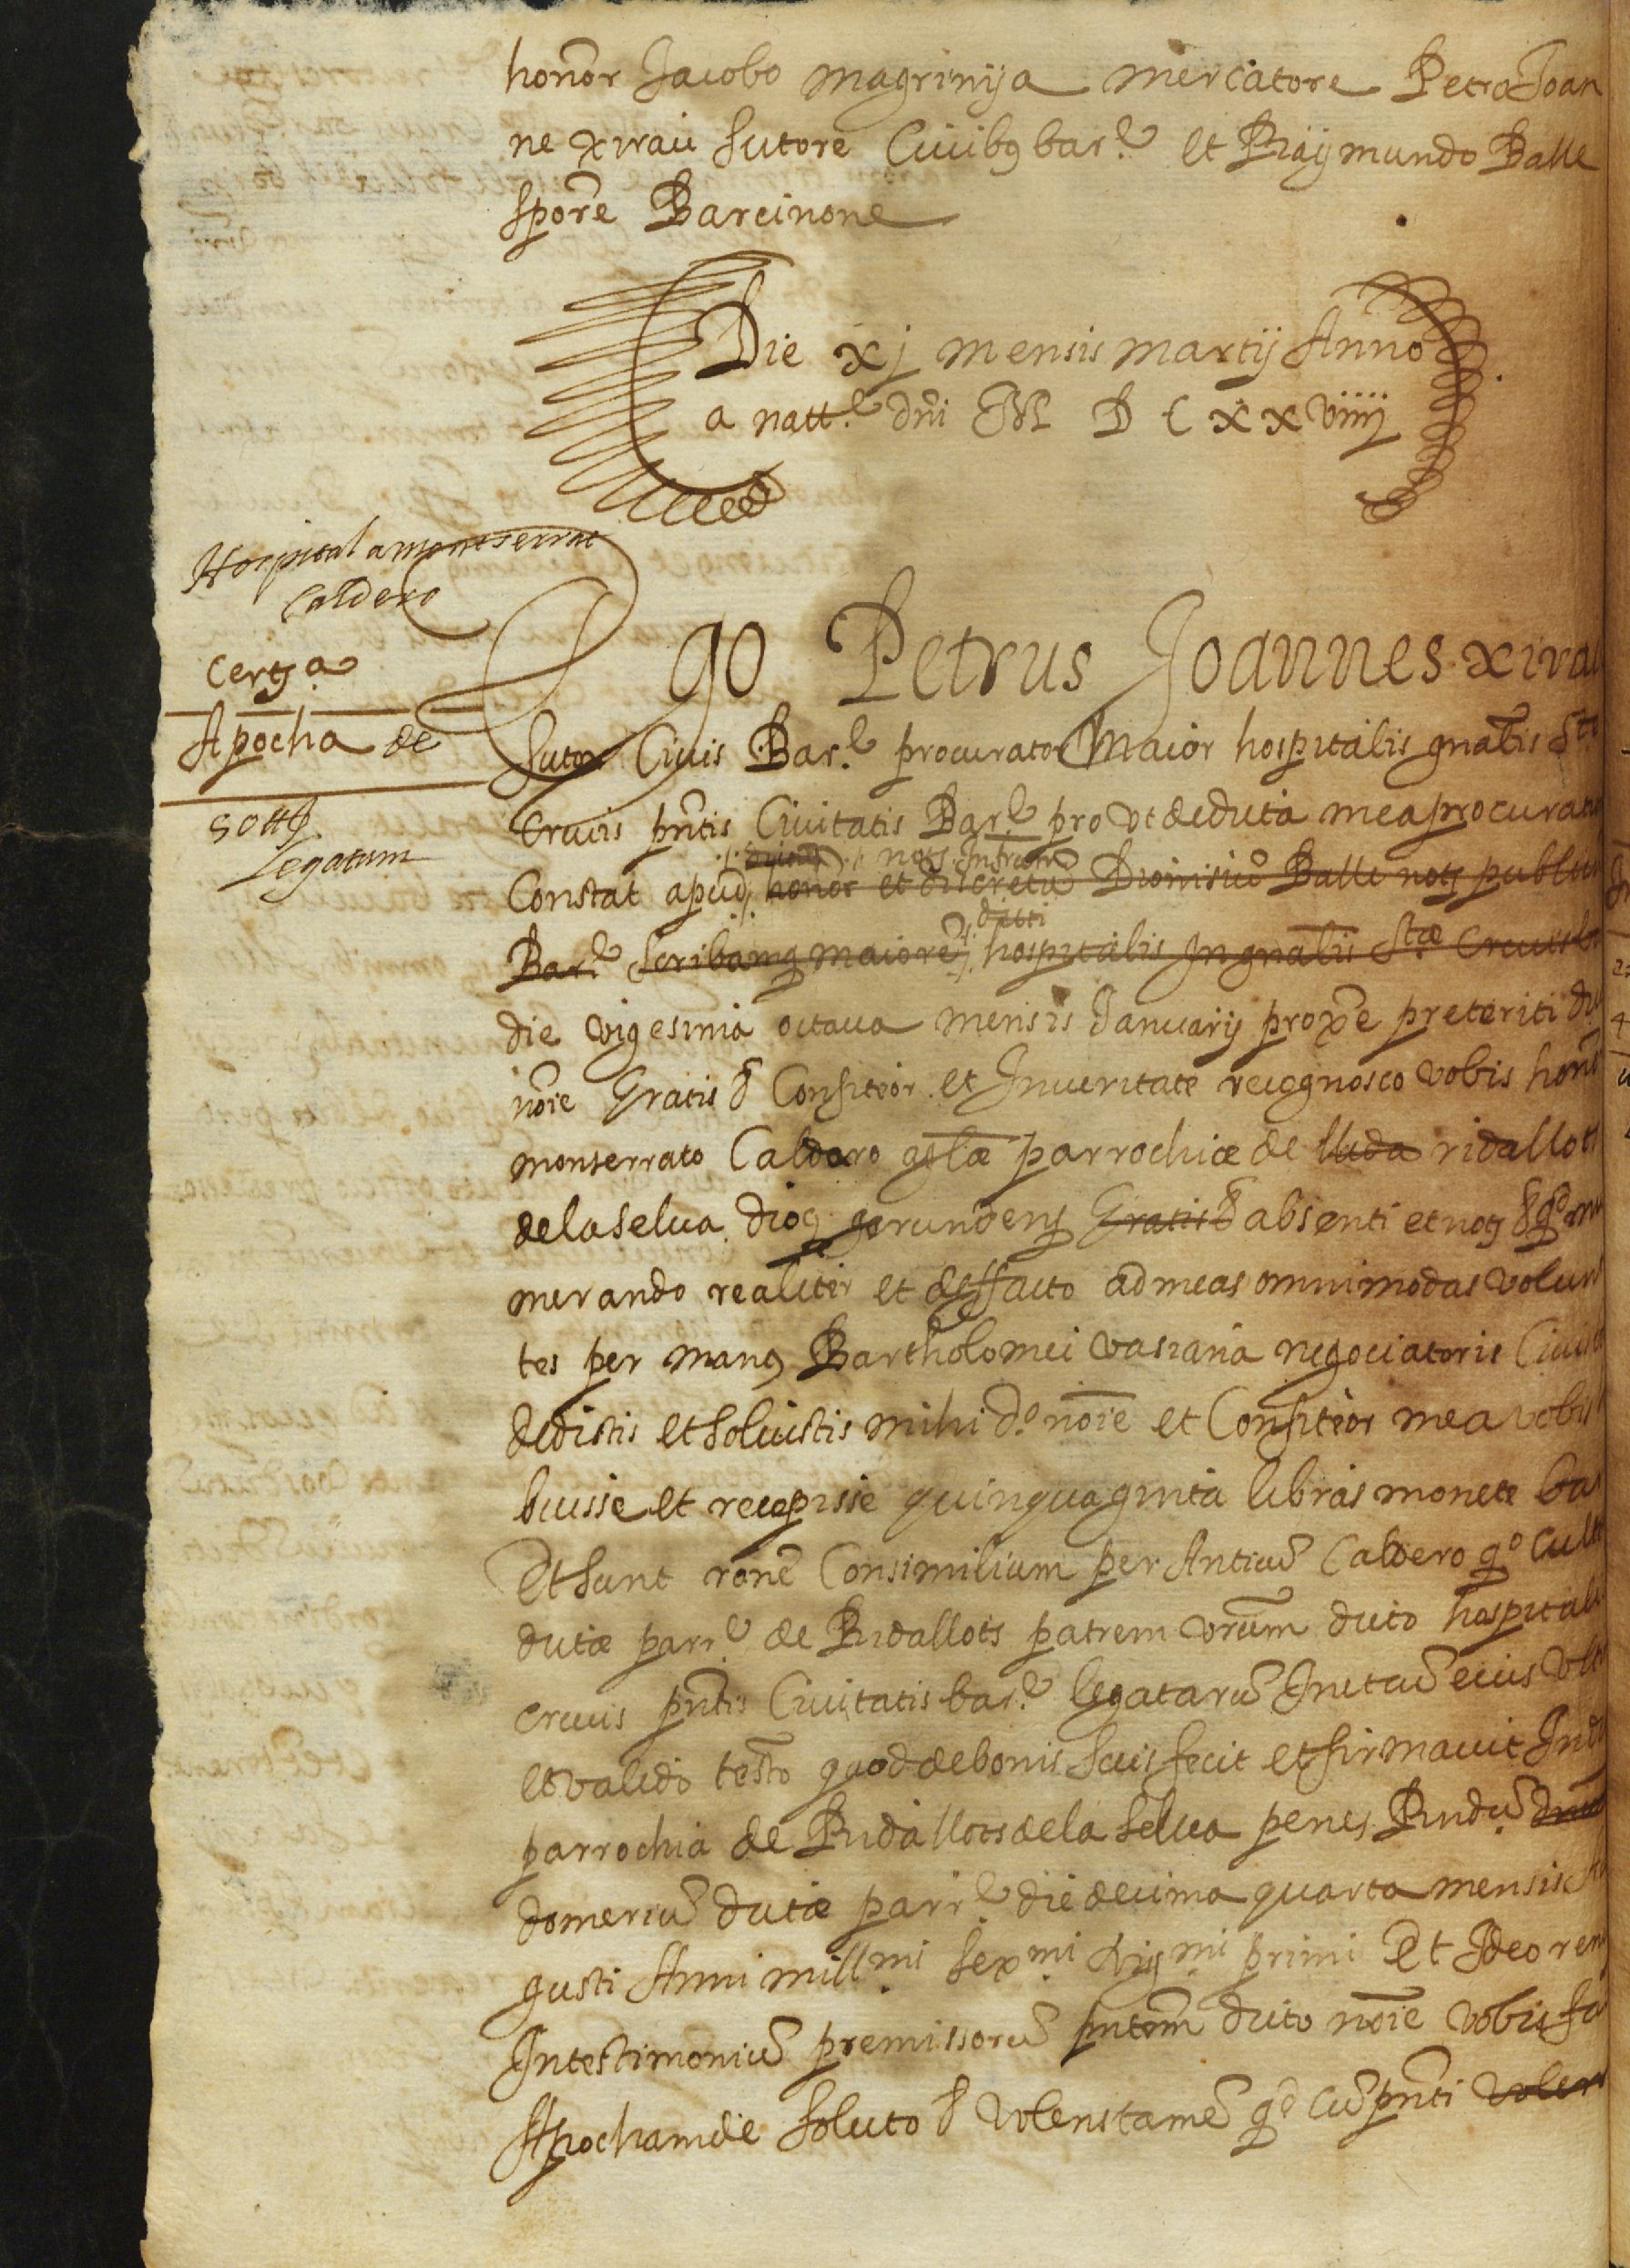 honor Jacobo magrinya mercatore Petro Joan
ne xirau sutore Civibq bar.ᵉ et Raymundo Balle
spore Barcinone
Die xj mensis martij Anno
a natt.ᵉ dñi M D C xx viiij
Hospital a montserrat
Caldero
certª
Apocha de
50 ₶
Legatum
Ego Petrus Joannes xirau
sutor Civis Bar.ᵉ procurator Maior hospitalis gnalis Sᵗᵉ
Crucis pñtis Civitatis Bar.ᵉ pro vt de dicta mea procura
Constat apud honor et discretũ Dionisiũ Balle notˢ publicũ
notˢ Infrum
Bar.ᵉ scribamq maiorẽ dicti hospitalis gnalis Sᵗæ Crucis
die vigesima octava mensis Januarij proxe preteriti
noie Gratis & Confiteor et In veritate recognosco vobis hono
monserrato Caldero parrochiæ de ridallots
de la selva dioq gerundenq Gratis & absenti et notˢ
merando realiter et de ffacto ad meas omnimodas volun
tes per manq Bartholomei vasiana negociatoris Civis
dedistis et solvistis mihi dº noie et Confiteor me a vobis
buisse et recepisse quinquaginta libras monete bar
Et sunt rone Consimilium per Anticũ Caldero qº cult
dictæ parr.ᵉ de Ridallots patrem vrum dicto hospitali
crucis pñtis Civitatis bar.ᵉ legatarũ In eius vlt
et valido testo quod de bonis suis fecit et firmavit In d
parrochia de Ridallots de la selva penes Rndũ
domeriũ dictæ parr.ᵉ die decima quarta mensis Au
gusti Anni millᵐⁱ sexᵐⁱ vigᵐⁱ primi Et Ideo ren
In testimoniũ premissorũ pñtem dicto noie vobis fa
Apocham de soluto & volens tamẽ qd cũ pñti